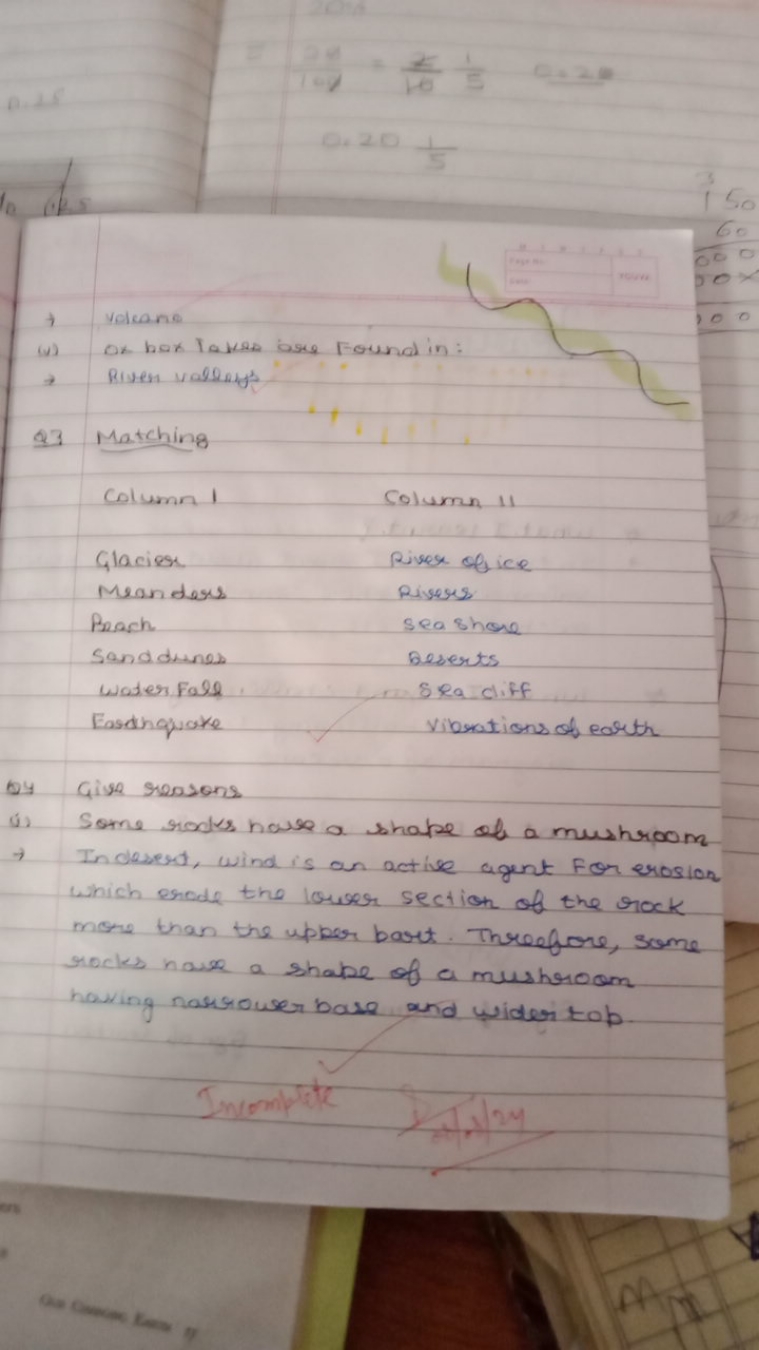 0.20 1/5
→ Volcano
(v) ox box lakes are Found in:
→ River valleys
Q3 Matching
Column I Column II
Glacier River of ice
Meanders Rivers
Beach Sea Shore
Sand dunes Deserts
Water Fall Sea cliff
Earthquake Vibrations of earth
Q4 Give reasons
(i) Some rocks have a shape of a mushroom
→ In desert, wind is an active agent For erosion
which erode the lower section of the rock
more than the upper part. Threefore, some
rocks have a shape of a mushroom
having narrower base and wider top.
Incomplete